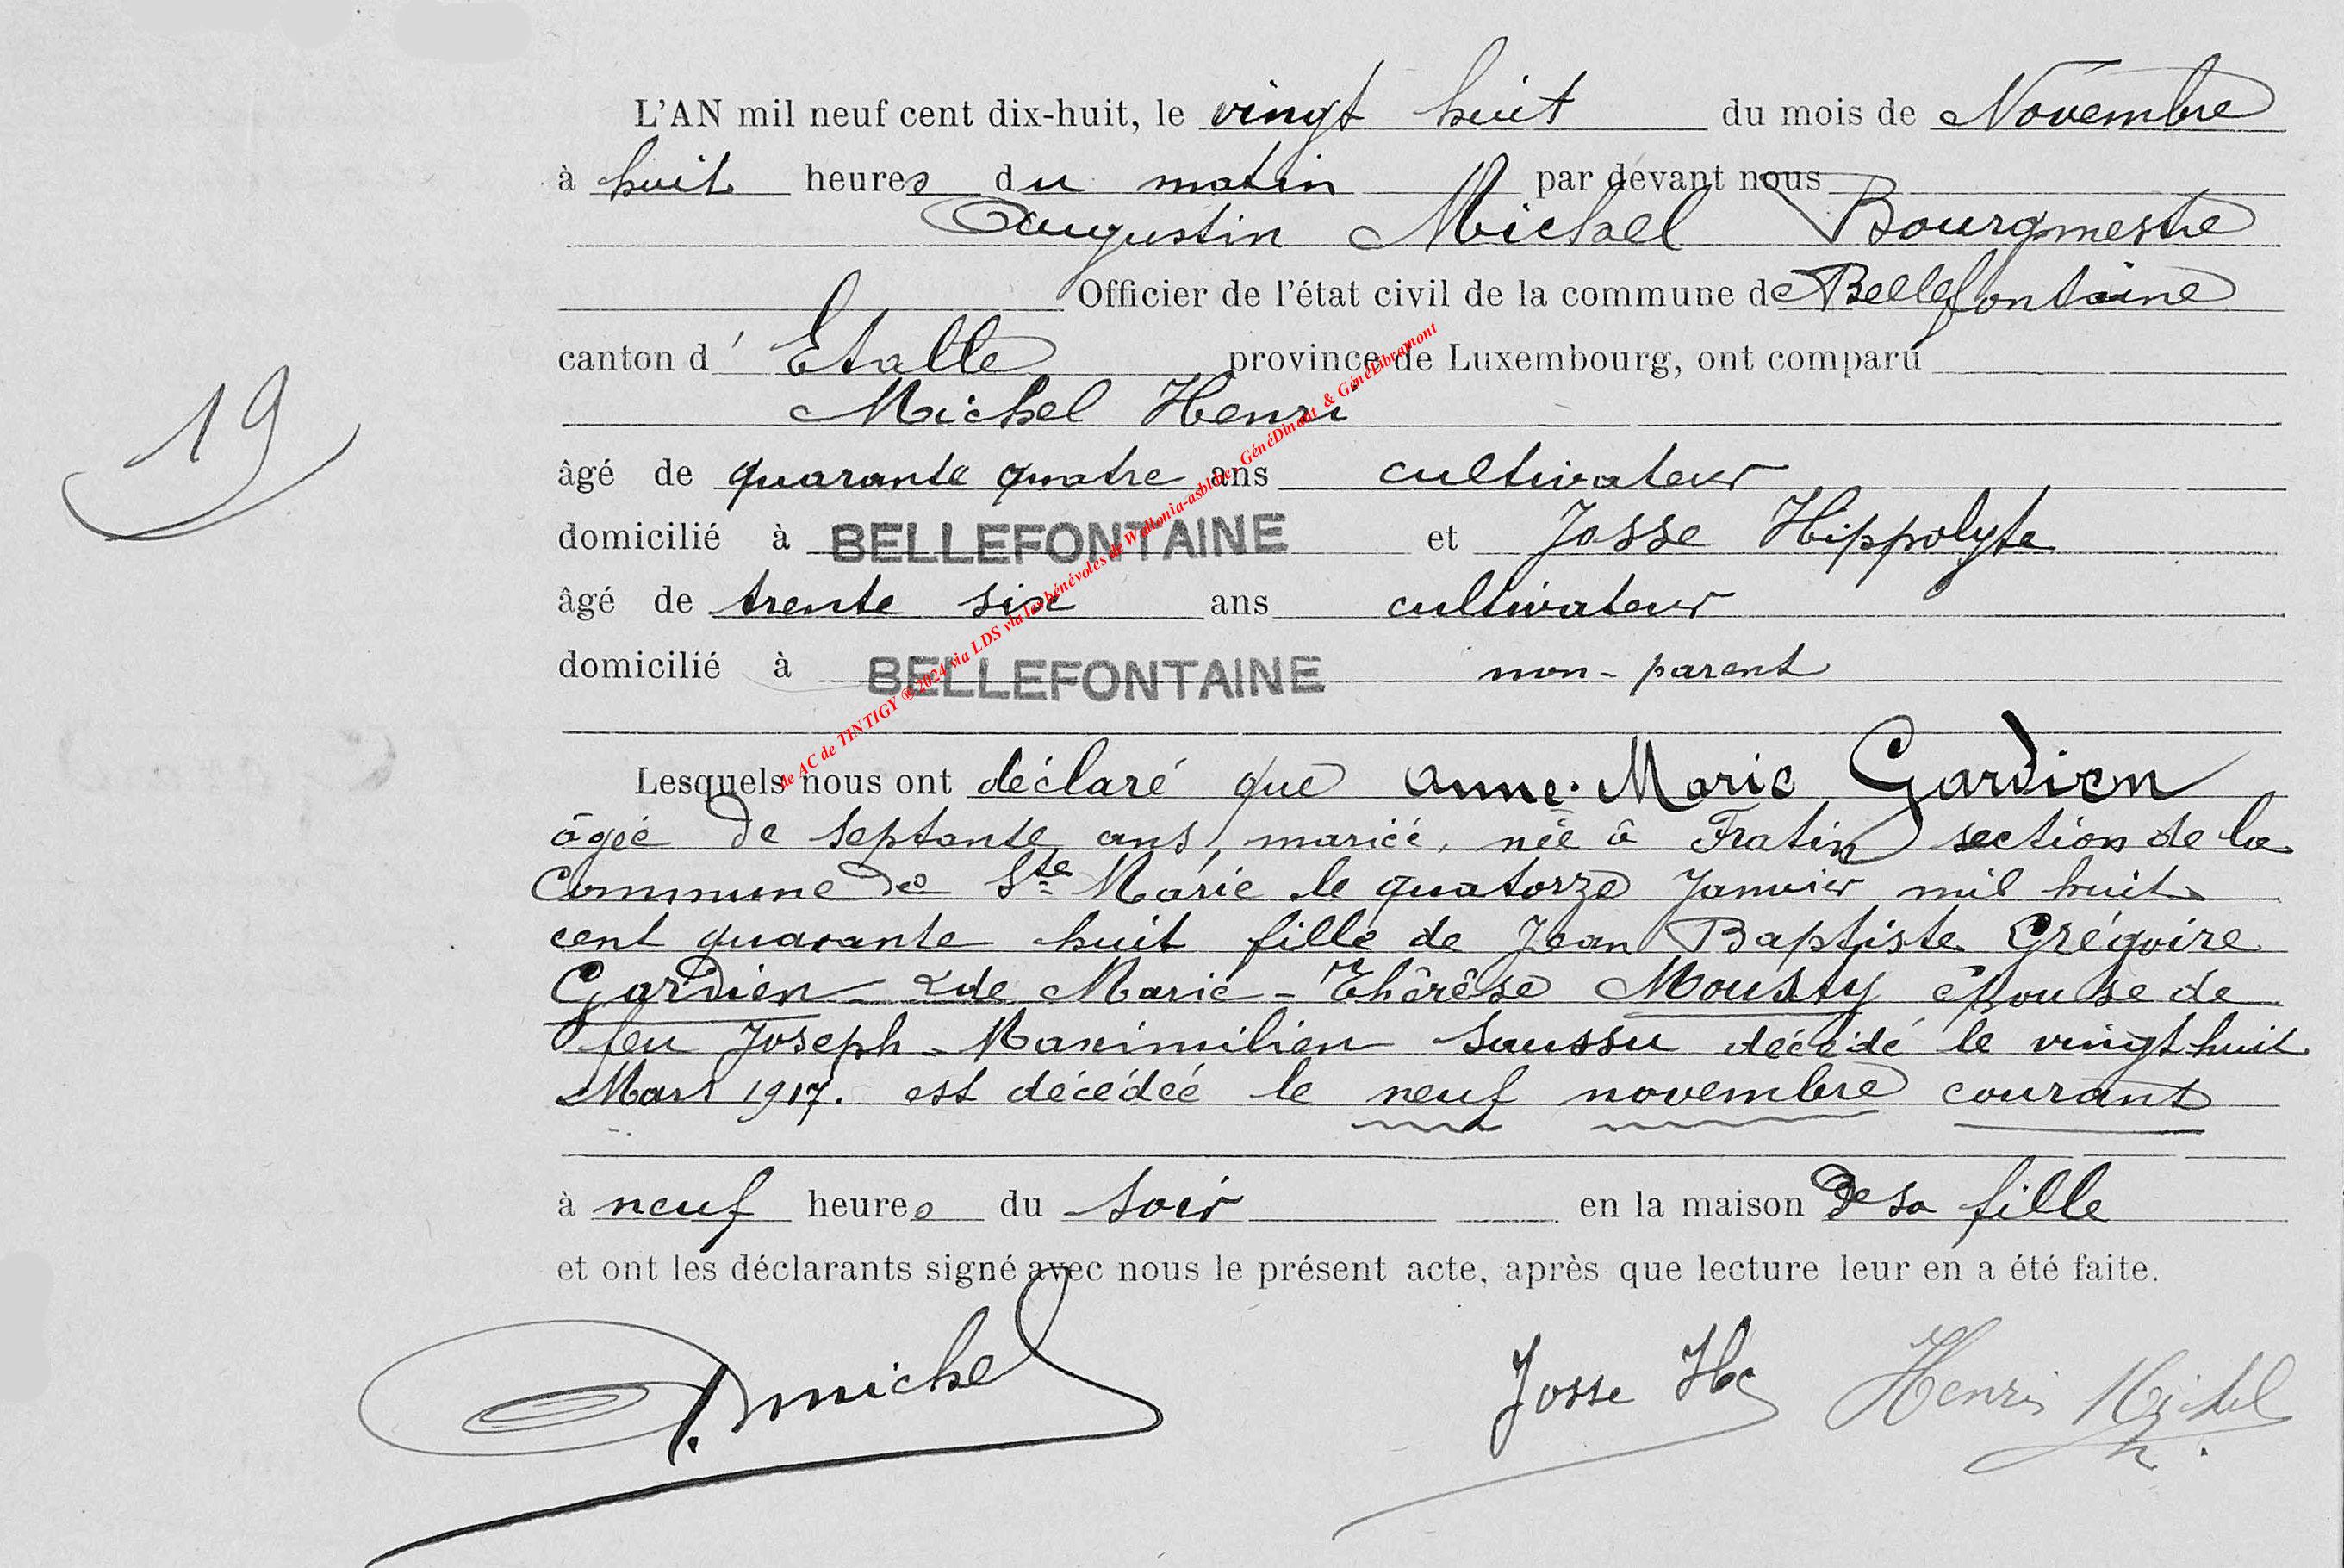 L'AN mil neuf cent dix-huit, le vingt huit du mois de Novembre
à huit heures du matin par devant nous
Augustin Michel Bourgmestre
Officier de l'état civil de la commune de Bellefontaine
canton d' Etalle province de Luxembourg, ont comparu
Michel Henri
19
âgé de quarante quatre ans cultivateur
domicilié à BELLEFONTAINE et Josse Hippolyte
âgé de trente six ans cultivateur
domicilié à BELLEFONTAINE non-parent
de AC de TINTIGY ® 2024 via LDS via les bénévoles de Wallonia-asbl.be, GénéDinant & GénéLibramont
Lesquels nous ont déclaré que Anne-Marie Gardien
âgée de septante ans, mariée, née à Fratin section de la
Commune de Ste Marie le quatorze Janvier mil huit
cent quarante huit fille de Jean Baptiste Grégoire
Gardien & de Marie-Thérèse Mousty épouse de
feu Joseph-Maximilien Saussu décédé le vingt huit
Mars 1917. est décédée le neuf novembre courant
à neuf heures du soir en la maison de sa fille
et ont les déclarants signé avec nous le présent acte, après que lecture leur en a été faite.
A. Michel Josse Hte Henri Michel